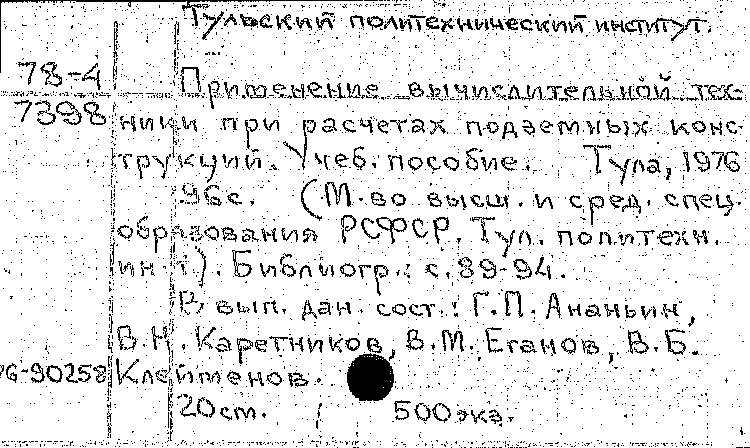 Тульский политехнический институт.
78-4 Применение вычислительной тех-
7398 ники при расчетах подземных конс-
трукций. Учеб. пособие. Тула, 1976
96с. (М-во высш. и сред. спец.
образования РСФСР. Тул. политехн.
ин-т). Библиогр.: с. 89-94.
В вып. дан. сост.: Г.П. Ананьин,
В.Н. Каретников, В.М. Еганов, В.Б.
76-90258 Клейменов.
20см. 500экз.